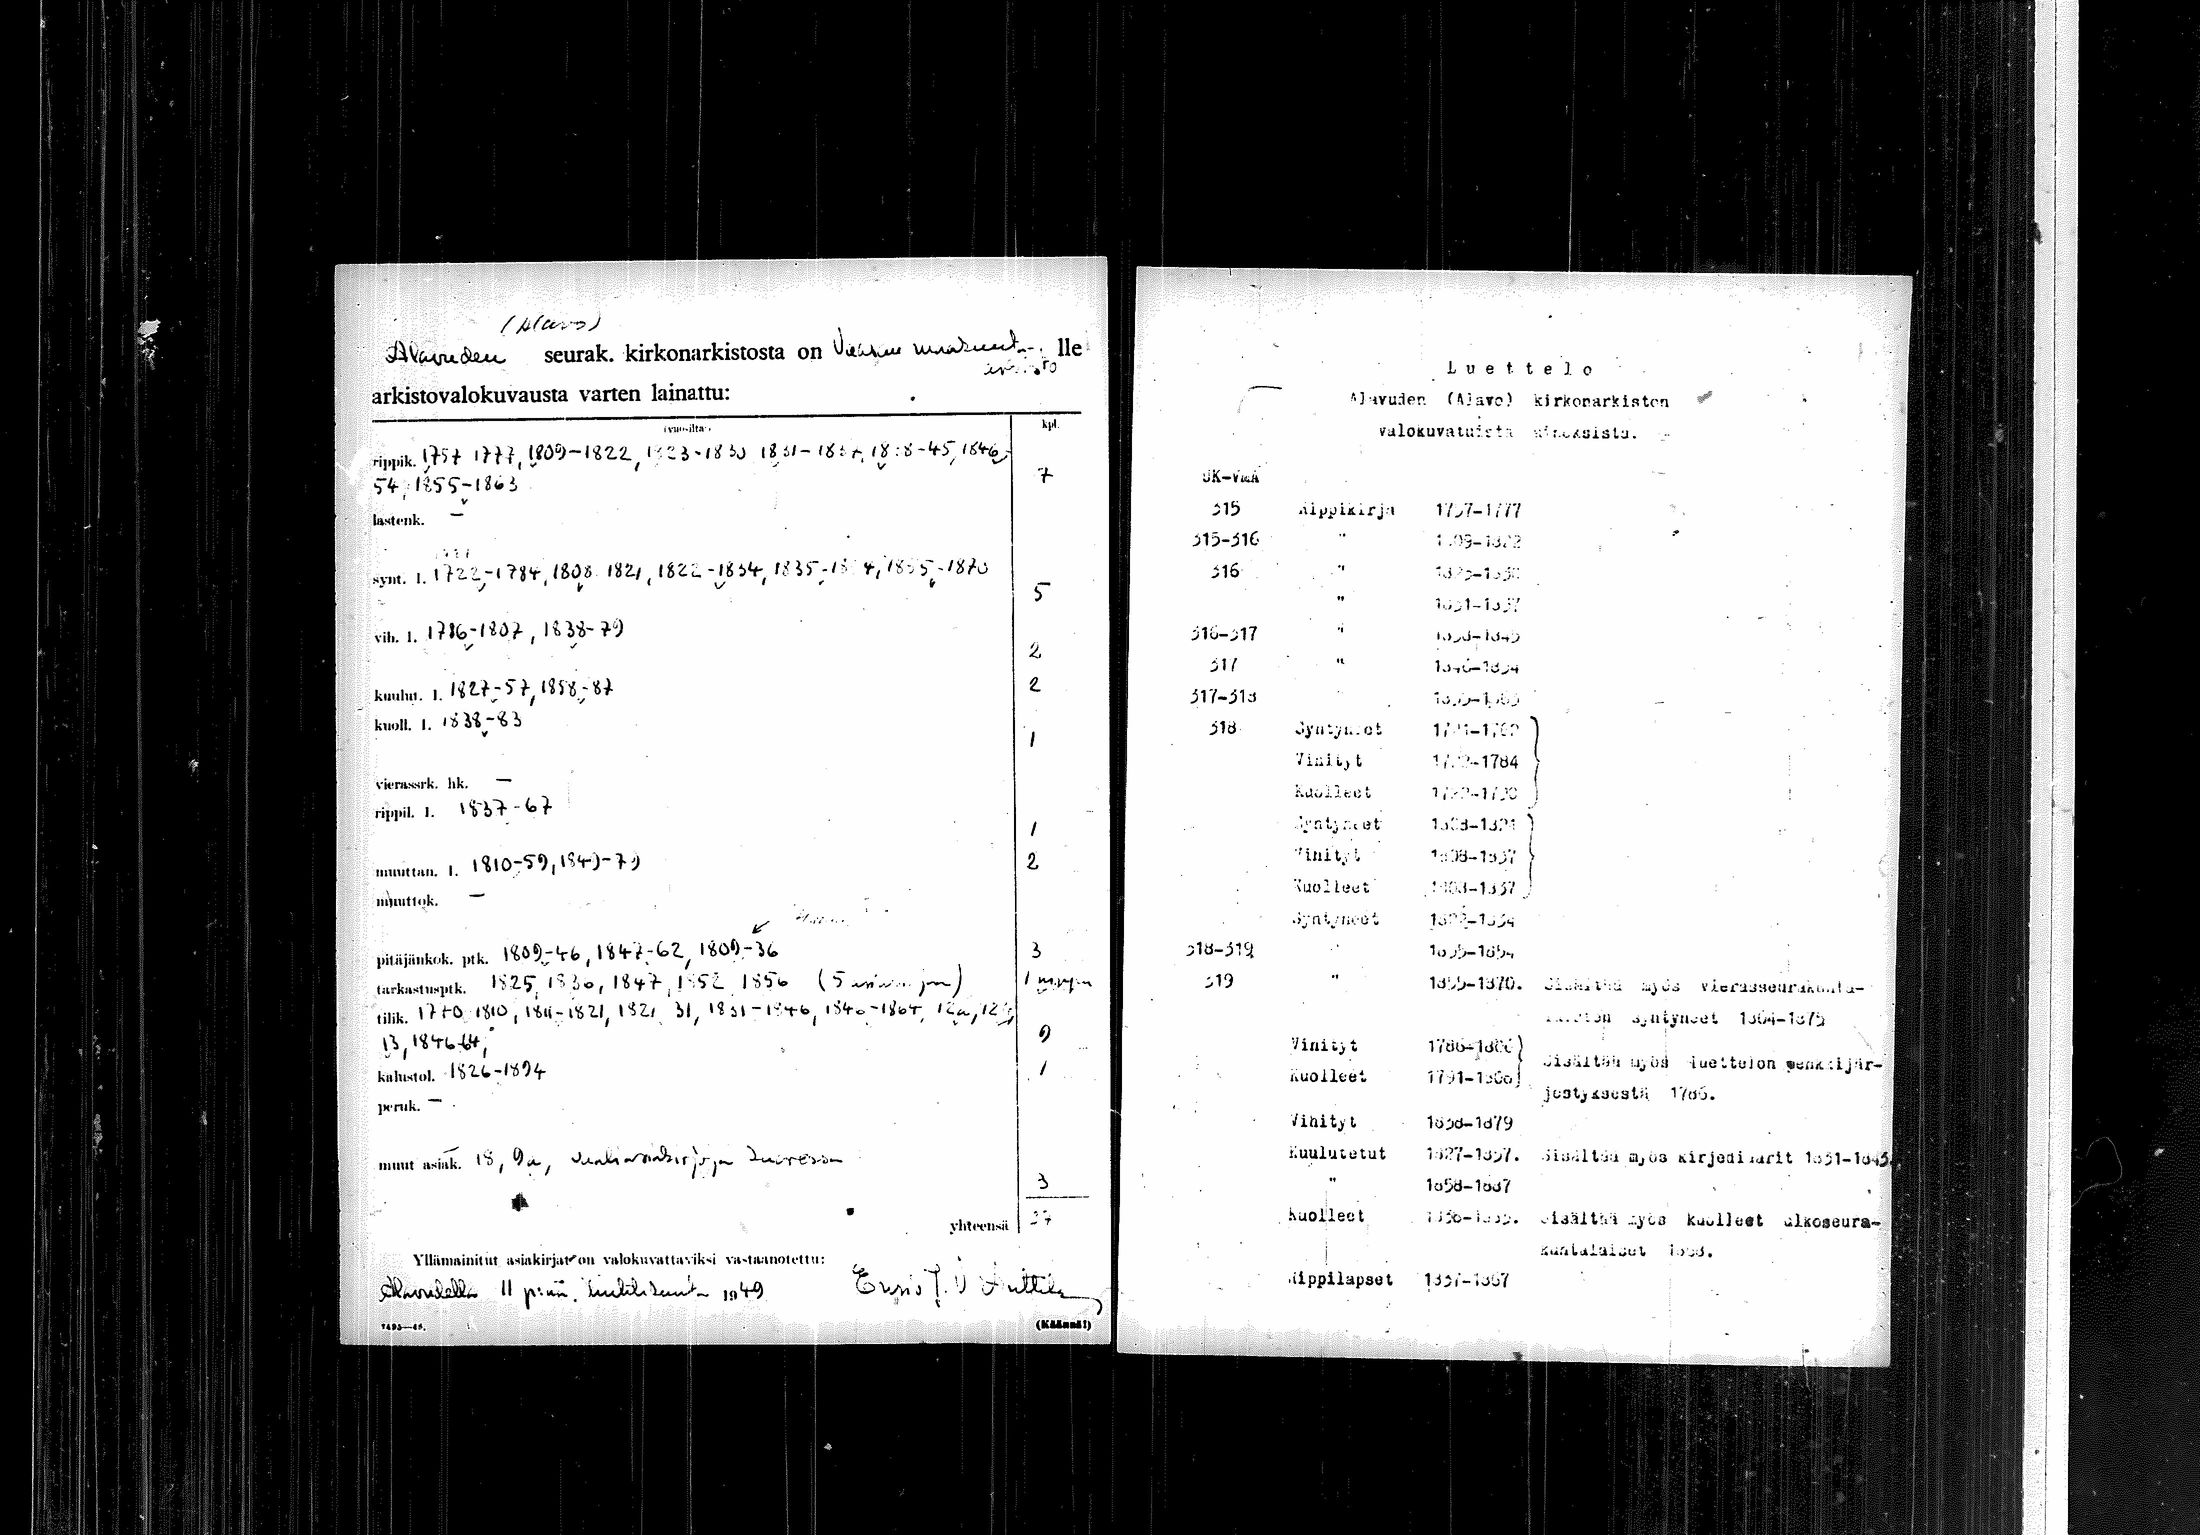 (Alavo)
Alavuden seurak. kirkonarkistosta on lle
arkistovalokuvausta varten lainattu:
(vuosilta) kpl.
rippik. 1757 1777, 1809-1822, 1823-1830 1831-1837, 1838-45, 1846-
54, 1855-1863 7
lastenk. –
synt. l. 1722-1784, 1808 1821, 1822-1834, 1835-1854, 1855-1870 5
vih. l. 1786-1807, 1838-79 2
kuulut. l. 1827-57, 1858-87 2
kuoll. l. 1838-83 1
vierassrk. hk. –
rippil. l. 1837-67 1
muuttan. l. 1810-59, 1849-79 2
muuttok. –
pitäjänkok. ptk. 1809-46, 1847-62, 1809-36 3
tarkastusptk. 1825, 1836, 1847, 1852 1856 1
tilik. 1770 1810, 1811-1821, 1821 31, 1831-1846, 1846-1864, 12a,
13, 1846-64, 9
kalustol. 1826-1894 1
peruk. –
muut asiak. 18, 9a, 3
yhteensä 37
Yllämainitut asiakirjat on valokuvattaviksi vastaanotettu:
Alavudella 11 p:nä huhtikuuta 1949
(Käännä!)
Luettelo
Alavuden (Alavo) kirkonarkiston
valokuvatuista
SK-VmA
315 Rippikirja 1757-1777
315-316 " 1809-1822
316 " 1823-1830
" 1831-1837
316-317 " 1838-1845
317 " 1846-1854
317-318 " 1855-1863
318 Syntyneet
Vihityt 1722-1784
Kuolleet
Syntyneet 1808-1821
Vihityt 1808-1837
Kuolleet 1808-1837
Syntyneet 1822-1834
318-319 " 1835-1854
319 " 1855-1870. Sisältää myös vierasseurakunta-
laisten syntyneet 1864-1875
Vihityt 1786-1806
Kuolleet 1791-1806 Sisältää myös luettelon penkkijär-
jestyksestä 1786.
Vihityt 1838-1879
Kuulutetut 1827-1857. Sisältää myös kirjediaarit 1831-1843.
" 1858-1887
Kuolleet 1838-1883. Sisältää myös kuolleet ulkoseura-
kuntalaiset 1868.
Rippilapset 1837-1867